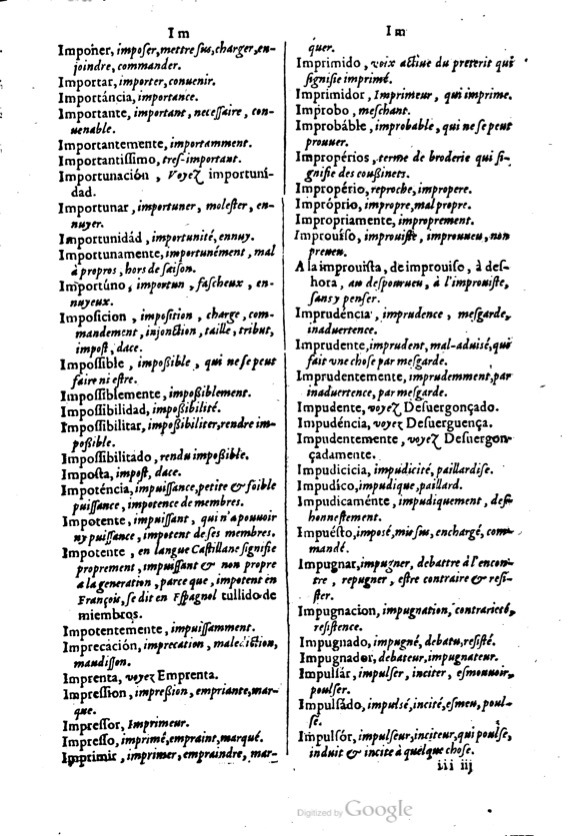 Im
Imponer, imposer, mettre sus, charger, en-
joindre, commander.
Importar, importer, conuenir.
Importáncia, importance.
Importante, important, necessaire, con-
uenable.
Importantemente, importamment.
Importantissimo, tres-important.
Importunación, Voyez importuni-
dad.
Importunar, importuner, molester, en-
nuyer.
Importunidád, importunité, ennuy.
Importunamente, importunément, mal
à propos, hors de saison.
Importúno, importun, fascheux, en-
nuyeux.
Imposicion, imposition, charge, com-
mandement, injonction, taille, tribut,
impost, dace.
Impossible, impoßible, qui ne se peut
faire ni estre.
Impossiblemente, impoßiblement.
Impossibilidad, impoßibilité.
Impossibilitar, impoßibiliter, rendre im-
poßible.
Impossibilitádo, rendu impoßible.
Imposta, impost, dace.
Impoténcia, impuissance, petite & foible
puissance, impotence de membres.
Impotente, impuissant, qui n'a pouuoir
ny puissance, impotent de ses membres.
Impotente, en langue Castillane signifie
proprement, impuissant & non propre
a la generation, parce que, impotent en
François, se dit en Espagnol tullido de
miembros.
Impotentemente, impuissamment.
Imprecación, imprecation, malediction,
maudisson.
Imprenta, voyez Emprenta.
Impression, impreßion, empriante, mar-
que.
Impressor, Imprimeur.
Impresso, imprimé, empraint, marqué.
Imprimir, imprimer, empraindre, mar-
Im
quer.
Imprimido, voix actiue du preterit qui
signifie imprimé.
Imprimidor, Imprimeur, qui imprime.
Improbo, meschant.
Improbáble, improbable, qui ne se peut
prouuer.
Impropérios, terme de broderie qui si-
gnifie des coußinets.
Impropério, reproche, impropere.
Impróprio, impropre, mal propre.
Impropriamente, improprement.
Improuíso, improuiste, improuueu, non
preueu.
A la improuista, de improuiso, à des-
hora, au despourueu, à l'improuiste,
sans y penser.
Imprudéncia, imprudence, mesgarde,
inaduertence.
Imprudente, imprudent, mal-aduisé, qui
fait vne chose par mesgarde.
Imprudentemente, imprudemment, par
inaduertence, par mesgarde.
Impudente, voyez Desuergonçado.
Impudéncia, voyez Desuerguença.
Impudentemente, voyez Desuergon-
çadamente.
Impudicicia, impudicité, paillardise.
Impudíco, impudique, paillard.
Impudicaménte, impudiquement, des-
honnestement.
Impuésto, imposé, mis sus, enchargé, com-
mandé.
Impugnar, impugner, debattre à l'encon-
tre, repugner, estre contraire & resi-
ster.
Impugnacion, impugnation, contrarieté,
resistence.
Impugnado, impugné, debatu, resisté.
Impugnador, debateur, impugnateur.
Impulsár, impulser, inciter, esmouuoir,
poulser.
Impulsádo, impulsé, incité, esmeu, poul-
sé.
Impulsór, impulseur, inciteur, qui poulse,
induit & incite à quelque chose.
iii iij
Digitized by Google